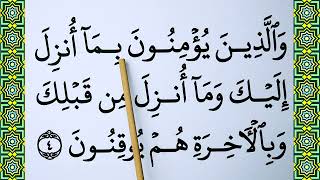 وَٱلَّذِينَ يُؤۡمِنُونَ بِمَآ أُنزِلَ
إِلَيۡكَ وَمَآ أُنزِلَ مِن قَبۡلِكَ
وَبِٱلۡأٓخِرَةِ هُمۡ يُوقِنُونَ ٤